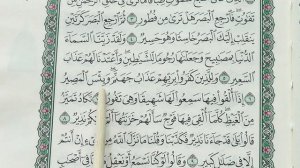 تَفَٰوُتٍ فَٱرْجِعِ ٱلْبَصَرَ هَلْ تَرَىٰ مِن فُطُورٍ ٣ ثُمَّ ٱرْجِعِ ٱلْبَصَرَ كَرَّتَيْنِ
يَنقَلِبْ إِلَيْكَ ٱلْبَصَرُ خَاسِئًا وَهُوَ حَسِيرٌ ٤ وَلَقَدْ زَيَّنَّا ٱلسَّمَآءَ
ٱلدُّنْيَا بِمَصَٰبِيحَ وَجَعَلْنَٰهَا رُجُومًا لِّلشَّيَٰطِينِ وَأَعْتَدْنَا لَهُمْ عَذَابَ
ٱلسَّعِيرِ ٥ وَلِلَّذِينَ كَفَرُوا۟ بِرَبِّهِمْ عَذَابُ جَهَنَّمَ وَبِئْسَ ٱلْمَصِيرُ
٦ إِذَآ أُلْقُوا۟ فِيهَا سَمِعُوا۟ لَهَا شَهِيقًا وَهِىَ تَفُورُ ٧ تَكَادُ تَمَيَّزُ
مِنَ ٱلْغَيْظِ كُلَّمَآ أُلْقِىَ فِيهَا فَوْجٌ سَأَلَهُمْ خَزَنَتُهَآ أَلَمْ يَأْتِكُمْ نَذِيرٌ ٨
قَالُوا۟ بَلَىٰ قَدْ جَآءَنَا نَذِيرٌ فَكَذَّبْنَا وَقُلْنَا مَا نَزَّلَ ٱللَّهُ مِن شَىْءٍ إِنْ أَنتُمْ
إِلَّا فِى ضَلَٰلٍ كَبِيرٍ ٩ وَقَالُوا۟ لَوْ كُنَّا نَسْمَعُ أَوْ نَعْقِلُ مَا كُنَّا فِىٓ أَصْحَٰبِ